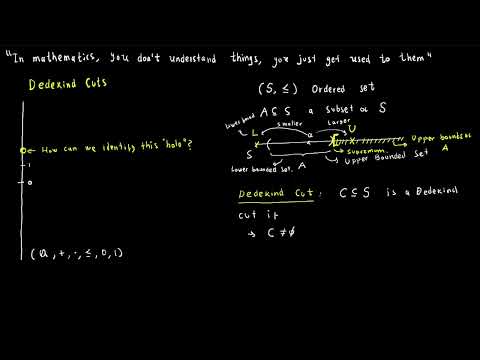 "In mathematics, you don't understand things, you just get used to them"
Dedekind Cuts
How can we identify this "hole"?
1
0
(Q, +, ·, ≤, 0, 1)
(S, ≤) Ordered set
A ⊆ S a subset of S
lower bound
smaller
larger
L
a
U
S
x
supremum
Upper bounds of A
Lower bounded set
A
Upper Bounded Set
Dedekind Cut: C ⊆ S is a Dedekind
cut if
→ C ≠ ∅